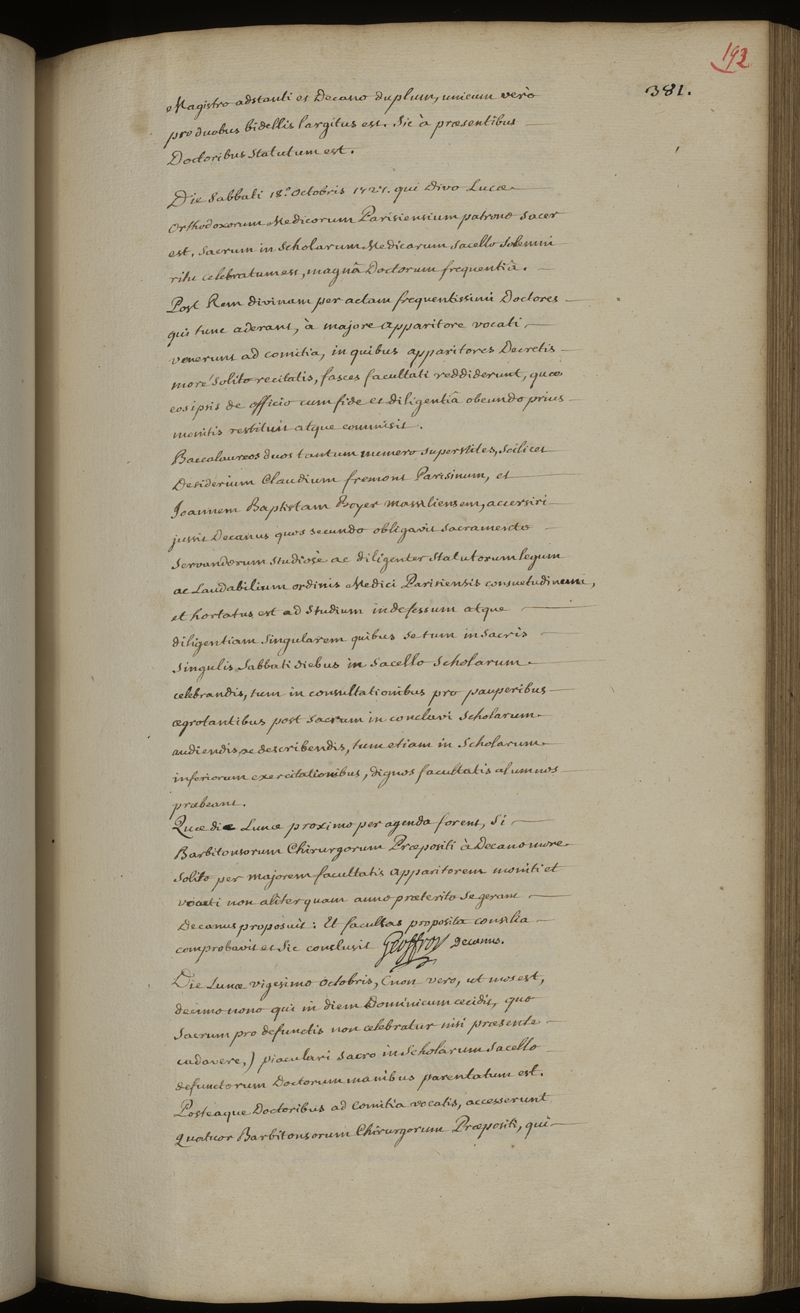 193
381.
Magistro adstanti et Decano duplum, unicum verò
pro duobus bidellis largitus est. Sic à præsentibus
Doctoribus statutum est.
Die Sabbati 18.º Octobris 1727. qui Divo Lucæ
Orthodoxorum Medicorum Parisiensium patrono sacer
est, Sacrum in Scholarum Medicarum sacello solemni
ritu celebratum est, magnâ Doctorum frequentiâ.
Post Rem divinam per actam frequentissimi Doctores
qui tunc aderant, à majore apparitore vocati,
venerunt ad comitia, in quibus apparitores Decretis
more solito recitatis, fasces facultati reddiderunt, quæ
eos ipsis de officio cum fide et diligentiâ obeundo prius
monitis restituit atque commisit.
Baccalaureos duos tantum numero superstites, scilicet
Desiderium Claudium fremont Parisinum, et
Joannem Baptistam Boyer Massiliensem, accersiri
jussit Decanus quos secundo obligavit sacramento
servandorum studiosè ac diligenter statutorum legum
ac Laudabilium ordinis Medici Parisiensis consuetudinum,
et hortatus est ad studium indefessum atque
diligentiam singularem quibus se tum in sacris
singulis sabbati diebus in sacello scholarum
celebrandis, tum in consultationibus pro pauperibus
ægrotantibus post sacrum in conclavi scholarum
audiendis ac describendis, tum etiam in Scholarum
inferiorum exercitationibus, dignos facultatis alumnos
præbeant.
Quæ die Lunæ proximo per agenda forent, si
Barbitonsorum Chirurgorum Præpositi à Decano more
solito per majorem facultatis apparitorem moniti et
vocati non aliter quam anno præterito se gerant
Decanus proposuit: Et facultas proposita consilia
comprobavit et sic conclusit Geoffroy Decanus.
Die Lunæ vigesimo Octobris, (non vero, ut mos est,
decimo nono qui in diem Dominicum cecidit, quo
sacrum pro defunctis non celebratur nisi præsente
cadavere,) piaculari sacro in Scholarum sacello
defunctorum Doctorum manibus parentatum est.
Posteaque Doctoribus ad Comitia vocatis, accesserunt
quatuor Barbitonsorum Chirurgorum Præpositi, qui